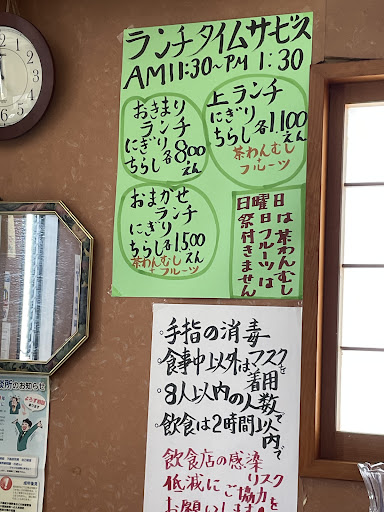 ランチタイムサービス
AM11:30~PM1:30
おきまり
ランチ
にぎり
ちらし各800えん
上ランチ
にぎり
ちらし各1.100えん
茶わんむし
+
フルーツ
おまかせ
ランチ
にぎり
ちらし各1.500えん
茶わんむし
+フルーツ
日は茶わんむし
曜日フルーツは
日祭付きません
。手指の消毒
。食事中以外はマスクを着用
。8人以内の人数で
。飲食は2時間以内で
飲食店の感染リスク
低減にご協力を
お願いします
談所のお知らせ